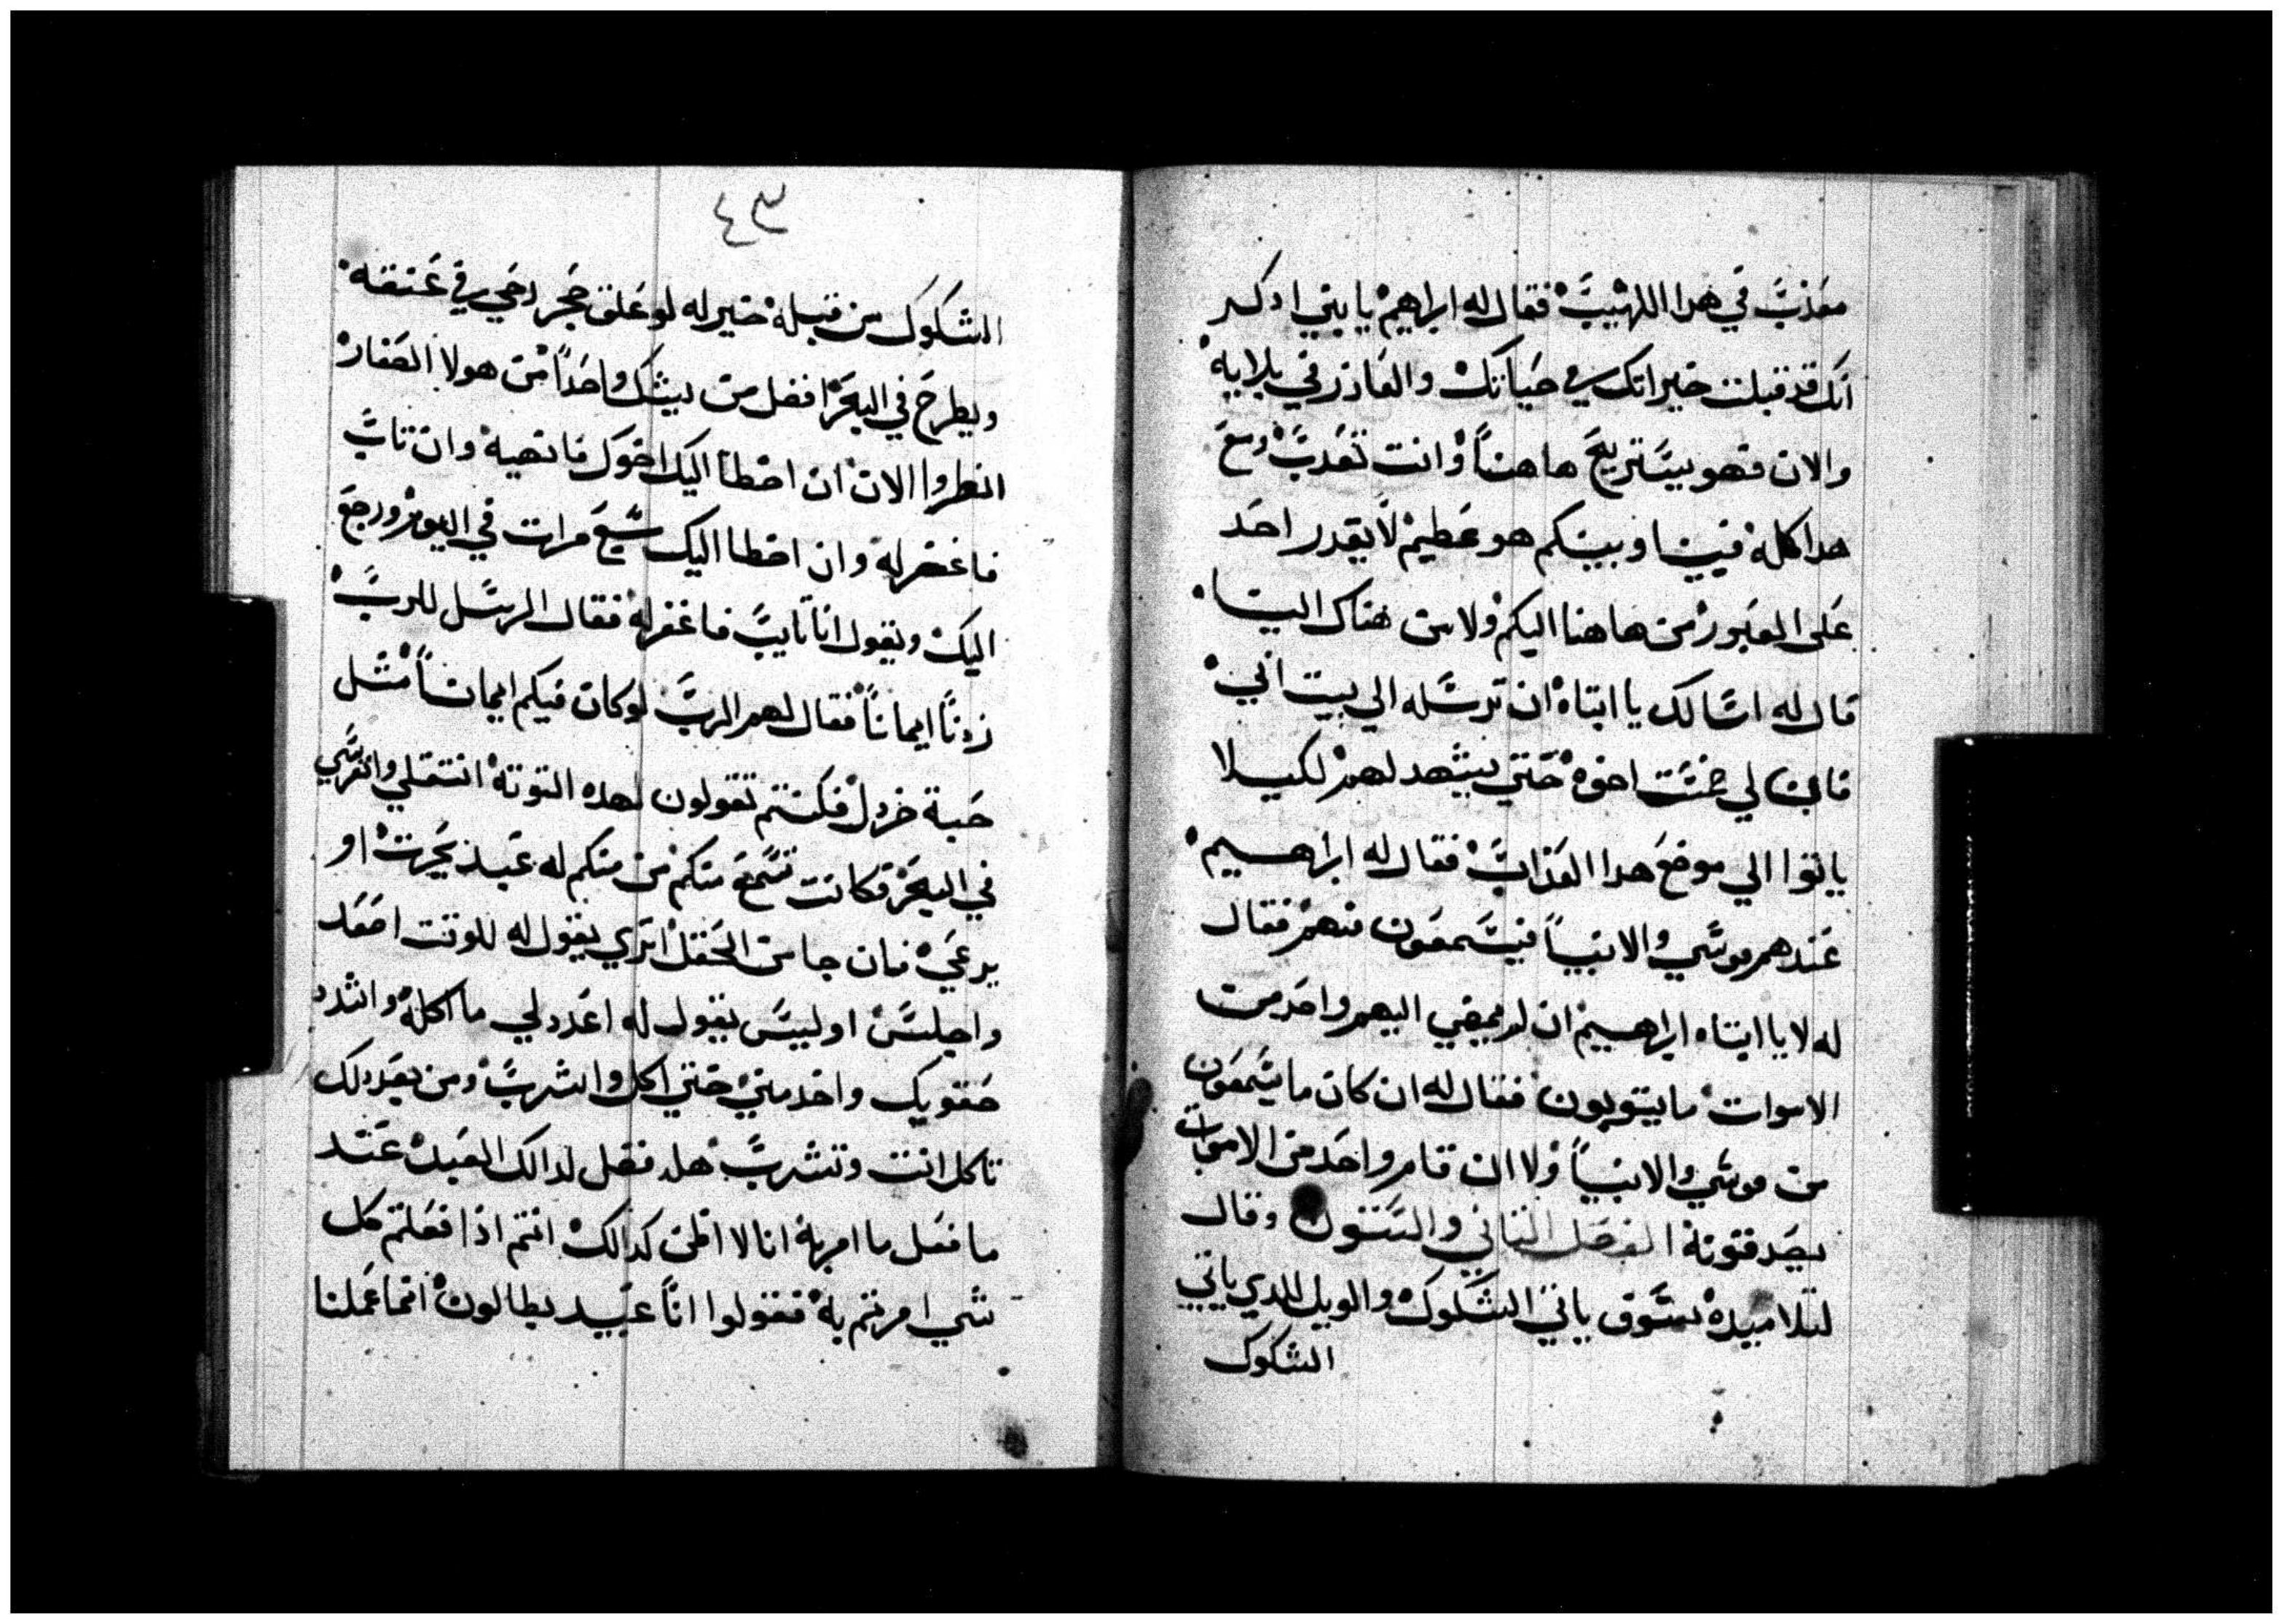 معَذبَّ في هدا اللهيْبَّ فقال له ابراهيمْ يا بني ادكر
انك قد قبلت خيراتك في حيَاتكْ والعَازر في بلايهْ
والان فهو بيسَتريحَ هاهناً وانت تعَدبَّ ومعَ
هدا كلهْ فبيننا وبينكم هو عَظيمْ لا يقدر احَد
عَلى العَبورْ من هاهنا اليكمْ ولا من هناك الينا
قال له اسَالك يا ابتاهْ ان ترسَله الي بيت ابيْ
فان لي خمسَت اخوهْ حَتي يشهد لهمْ لكيلا
ياتوا الي موضعَ هدا العَذابَّ فقال له ابراهيمْ
عَندهم موسَي والانبياً فيسَمعَون منهمْ فقال
له لا يا ابتاه ابراهيمْ ان لم يمضي اليهم واحَد من
الاموات ما يتوبون فقال له ان كان ما يسَمعَون
من موسَي والانبياً ولا ان قام واحَد من الاموات
يصَدقونهْ الفصَل الثاني والسَتون وقال
لتلاميدهْ سَوف ياتي الشكوكْ والويل للدي ياتي
الشكوك
٤٣
الشكوك من قبلهْ خير له لو عَلق حَجر رحَي في عَنقه
ويطرحَ في البحَرْ افضل من يشك واحَداً من هولا الصَغارْ
انظروا الان ان اخطا اليك اخوك فانهيهْ وان تابَّ
فاغفر لهْ وان اخطا اليك سَبعَ مرات في اليومْ ورجعَ
اليكْ ويقول اناً تايبَّ فاغفر لهْ فقال الرسَل للربَّ
زدناً ايماناً فقال لهم الربَّ لو كان فيكم ايماناً مثل
حَبة خردلْ فكنتم تقولون لهده التوتهْ انتقلي وانغرسَي
في البحَرْ فكانت تسَمعَ منكمْ من منكم له عَبد يحَرتْ او
يرعَيْ فان جا من الحَقلْ اتري يقول له للوقت اصَعَد
واجلسَْ او ليسَ يقول له اعَدد لي ما اكلهْ واشدد
حَقويك واخدمنيْ حَتي اكل واشربَّ ومن بعَد دلك
تاكل انت وتشربَّ هل فضل لدالك العَبدْ عَند
ما فعَل ما امر بهْ انا لا اظن كدالكْ انتم اذا فعَلتم كل
شي امرتم بهْ فقولوا اناً عَبيد بطالونْ انما عَملنا